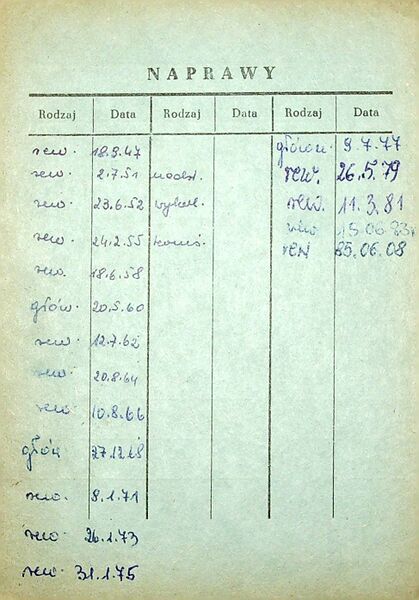 NAPRAWY
Rodzaj Data Rodzaj Data Rodzaj Data
rew. 18.9.47
rew. 2.7.51 nadst.
rew. 23.6.52
rew. 24.2.55
rew. 18.6.58
głów. 20.5.60
rew. 12.7.62
rew. 20.8.64
rew. 10.8.66
głów 27.12.68
rew. 8.1.71
rew 26.1.73
rew. 31.1.75
główn. 9.7.77
rew. 26.5.79
rew. 11.3.81
rew 15.06.83
rew 25.06.08